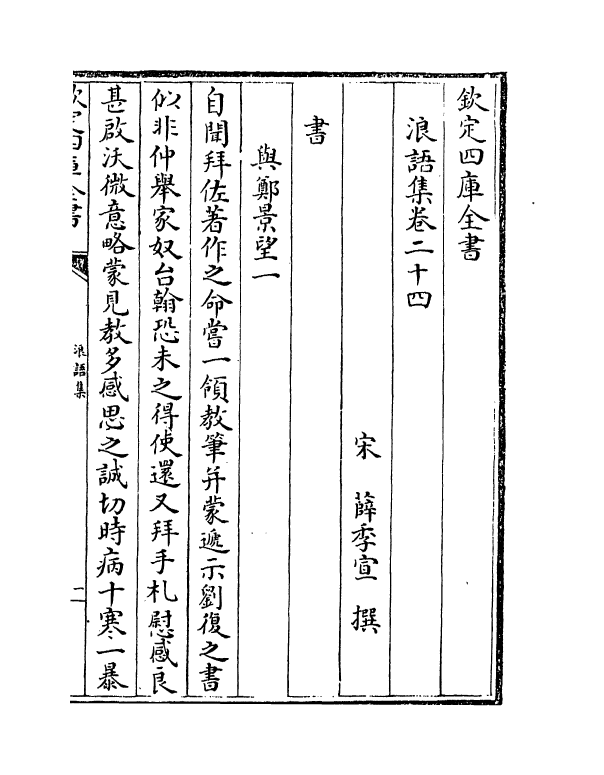 欽定四庫全書
浪語集卷二十四
宋 薛季宣 撰
書
與鄭景望一
自聞拜佐著作之命嘗一領教筆并蒙遞示劉復之書
似非仲舉家奴台翰恐未之得使還又拜手札慰感良
甚啟沃微意略蒙見教多感思之誠切時病十寒一暴
欽定四庫全書
浪語集